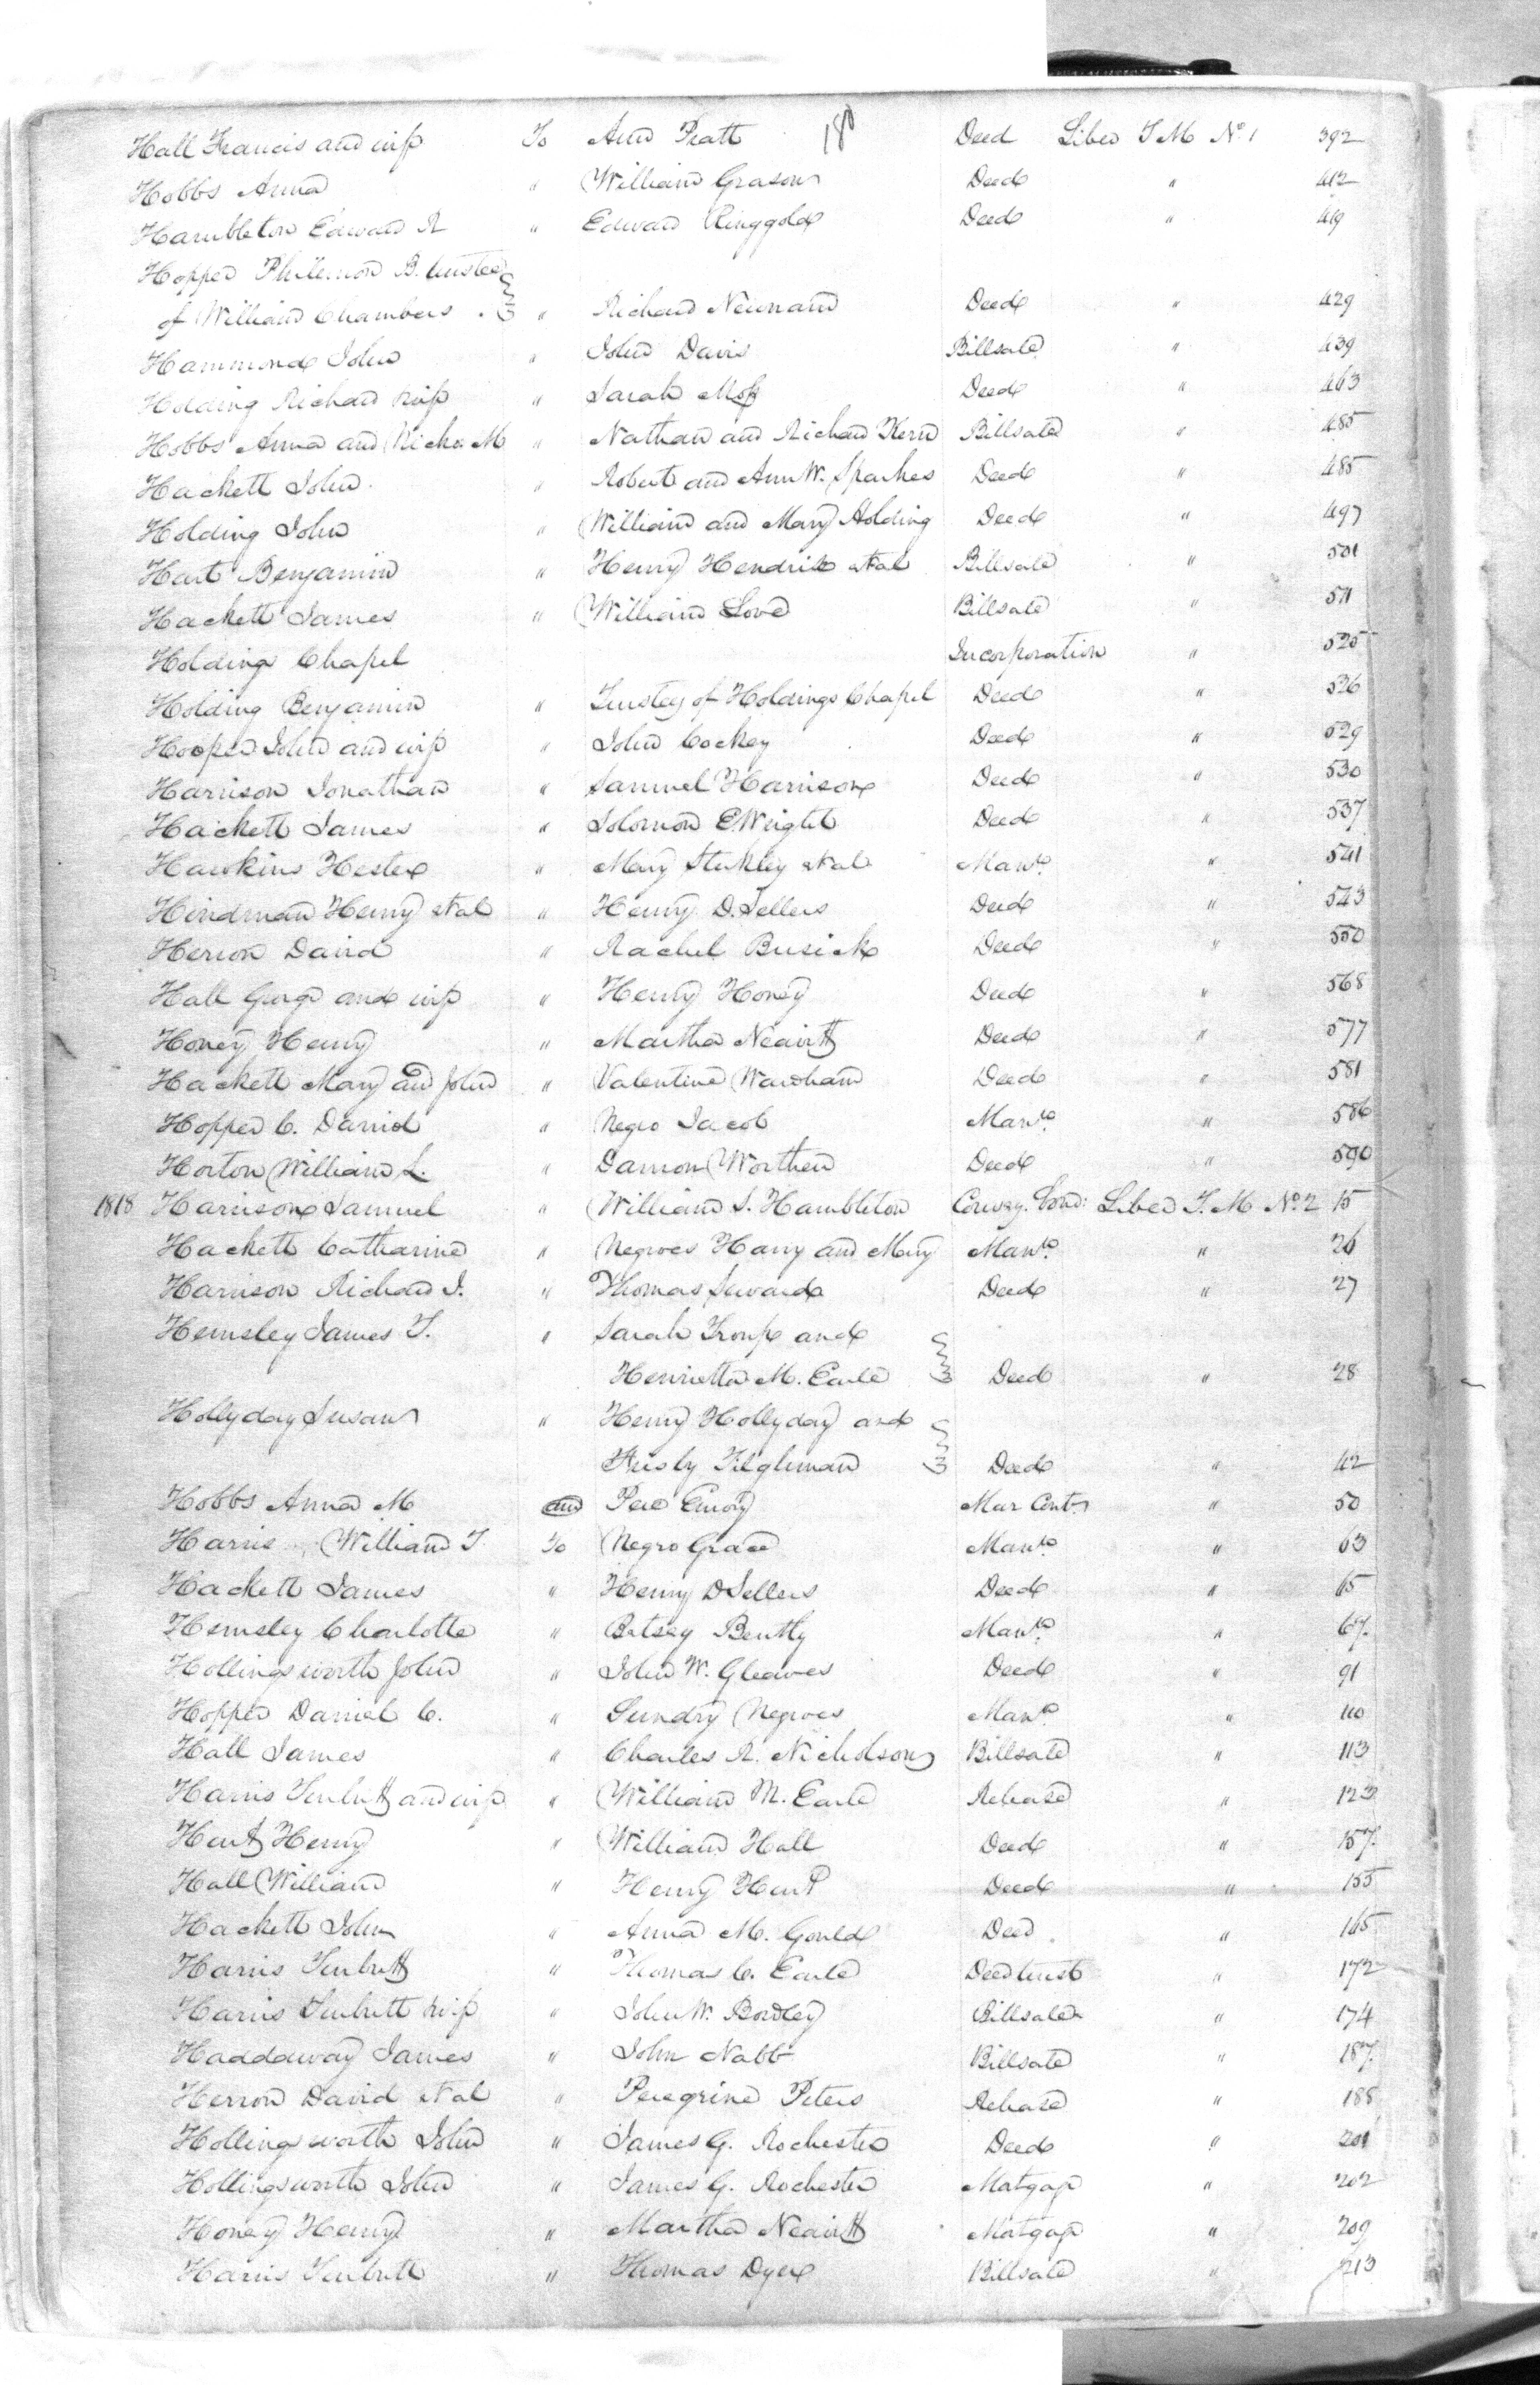 180
Hall Francis and wife To Ann Pratt Deed Liber T M No. 1 392
Hobbs Anna " William Grason Deed " 412
Hambleton Edward N " Edward Ringgold Deed " 419
Hopper Philemon B. trustee
of William Chambers " Richard Newnam Deed " 429
Hammond John " John Davis Billsale " 439
Holding Richard & wife " Sarah Moss Deed " 463
Hobbs Anna and Richd. M " Nathan and Richard Kern Billsale " 485
Hackett John " Robert and Ann W. Sparkes Deed " 485
Holding John " William and Mary Holding Deed " 497
Hart Benjamin " Henry Hendrix et al Billsale " 501
Hackett James " William Love Billsale " 511
Holding Chapel Incorporation " 525
Holding Benjamin " Trustees of Holdings Chapel Deed " 526
Hooper John and wife " John Cockey Deed " 529
Harrison Jonathan " Samuel Harrison Deed " 530
Hackett James " Solomon E Wright Deed " 537
Hawkins Hester " Mary et al Manto. " 541
Hindman Henry et al " Henry D. Sellers Deed " 543
Herron David " Rachel Busick Deed " 550
Hall George and wife " Henry Honey Deed " 568
Honey Henry " Martha Neavitt Deed " 577
Hackett Mary and John " Valentine Wareham Deed " 581
Hopper C. Daniel " Negro Jacob Manto. " 586
Horton William L. " Damon Worthen Deed " 590
1818 Harrison Samuel " William S. Hambleton Convey. Bond: Liber T. M No. 2 15
Hackett Catharine " Negroes Harry and Mary Manto. " 26
Harrison Richard J. " Thomas Seward Deed " 27
Hemsley James T. " Sarah Troup and
Henrietta M. Earle Deed " 28
Hollyday Susan " Henry Hollyday and
Frisby Tilghman Deed " 42
Hobbs Anna M and Pere Emory Mar Contr " 50
Harris William T. To Negro Grace Manto. " 63
Hackett James " Henry D Sellers Deed " 65
Hemsley Charlotte " Betsey Bently Manto. " 67.
Hollingsworth John " John W. Gleaves Deed " 91
Hopper Daniel C. " Sundry Negroes Manto. " 110
Hall James " Charles R. Nicholson Billsale " 113
Harris Turbutt and wife " William M. Earle Release " 123
Hurtt Henry " William Hall Deed " 157.
Hall William " Henry Hurtt Deed " 155
Hackett John " Anna M. Gould Deed " 165
Harris Turbutt " Thomas C. Earle Deed trust " 172
Harris Turbutt & wife " John W. Bordley Billsale " 174
Haddaway James " John Nabb Billsale " 187.
Herron David et al " Peregrine Peters Release " 188
Hollingsworth John " James G. Rochester Deed " 201
Hollingsworth John " James G. Rochester Motgage " 202
Honey Henry " Martha Neavitt Motgage " 209
Harris Turbutt " Thomas Dyer Billsale " 213